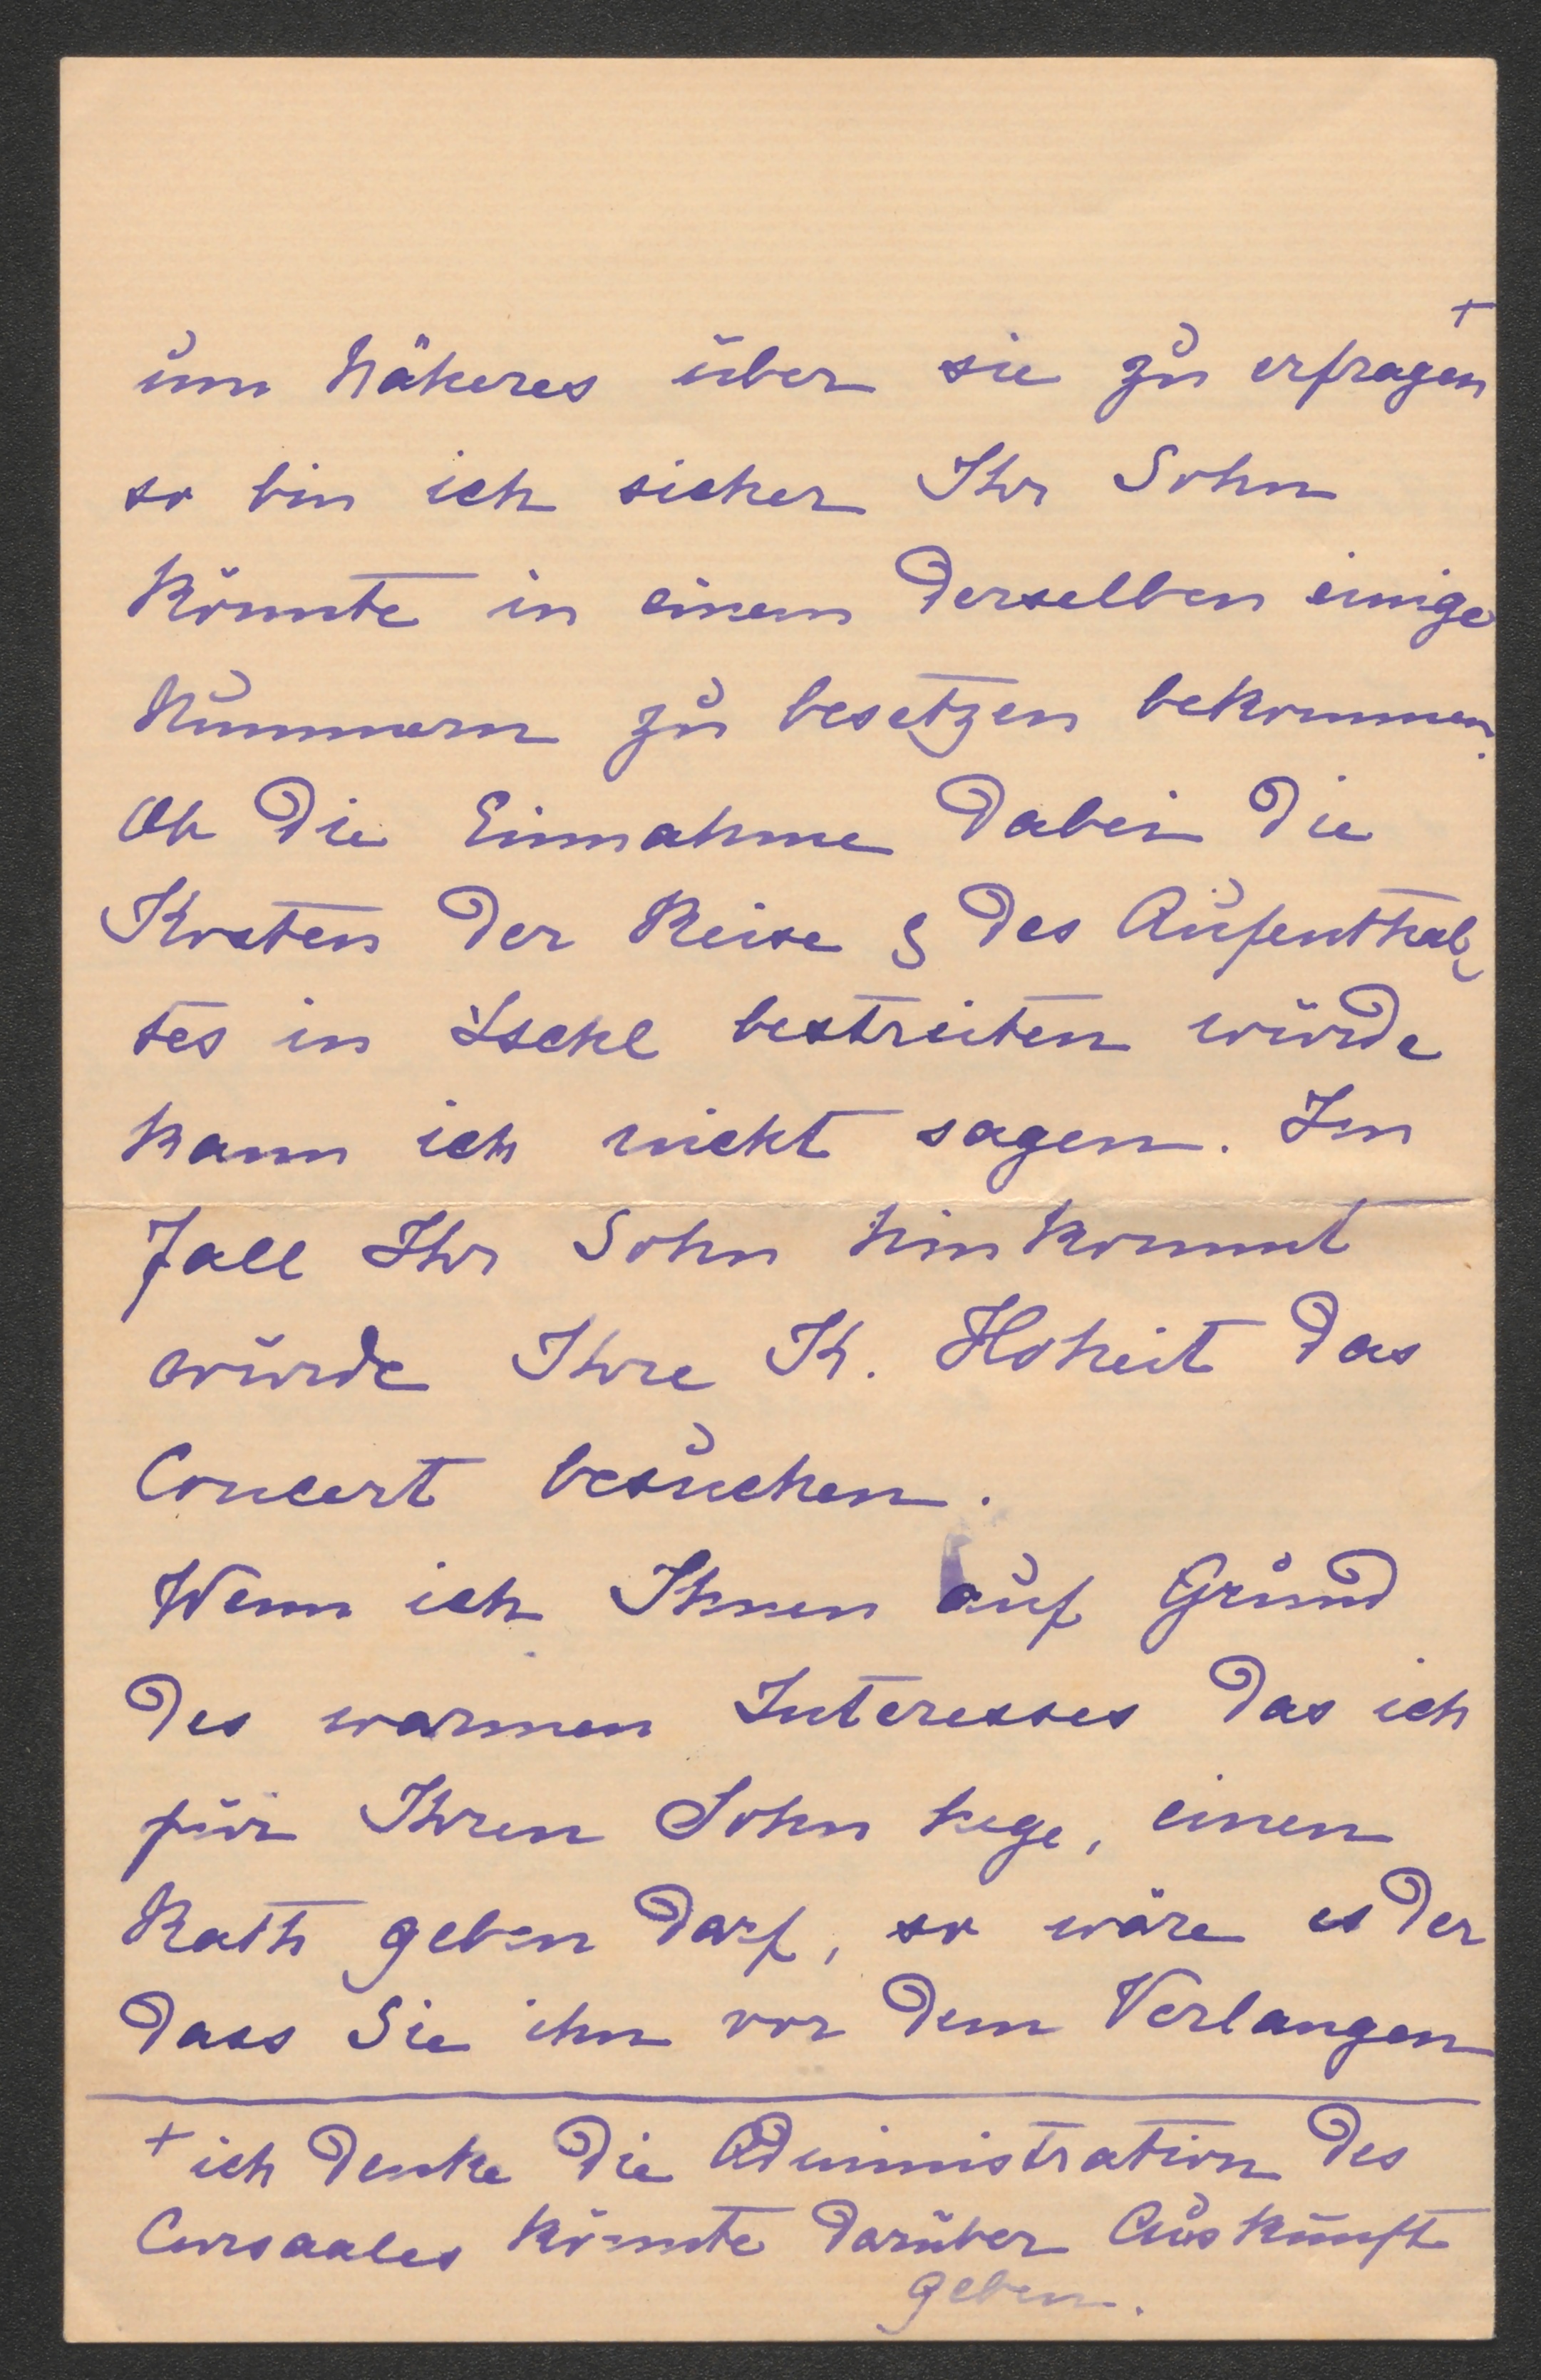 um Näheres über sie zu erfragen +
so bin ich sicher Ihr Sohn
könnte in einem derselben einige
Nummern zu besetzen bekommen.
Ob die Einnahme dabei die
Kosten der Reise & des Aufenthal-
tes in Ischl bestreiten würde
kann ich nicht sagen. Im
Fall Ihr Sohn hinkommt
würde Ihre K. Hoheit das
Concert besuchen.
Wenn ich Ihnen auf Grund
des warmen Interesses das ich
für Ihren Sohn hege, einen
Rath geben darf, so wäre es der
dass Sie ihn vor dem Verlangen
+ ich denke die Administration des
Cursaales könnte darüber Auskunft
geben.